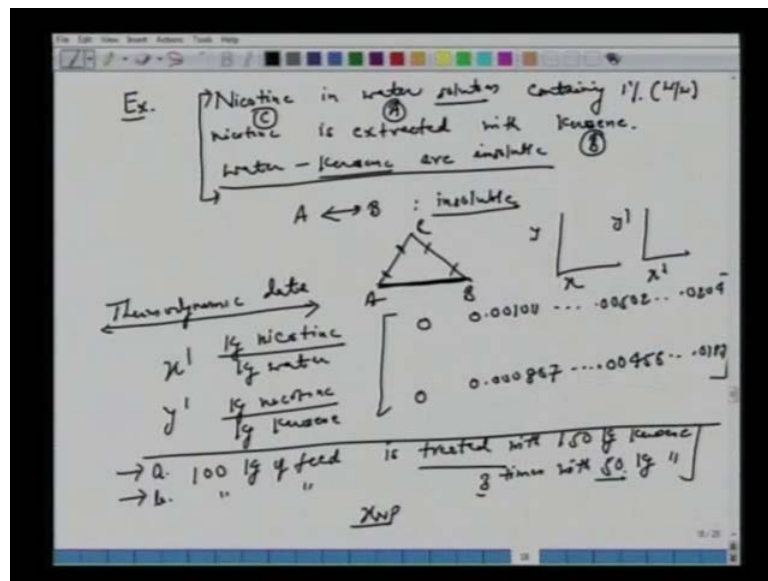 File Edit View Insert Actions Tools Help
Ex. Nicotine in water solution containing 1% (w/w)
C A
nicotine is extracted with kerosene.
B
water - kerosene are insoluble
A ↔ B : insoluble
C y y'
A B x x'
Thermodynamic data
x' kg nicotine / kg water 0 0.00101 ---- .00502 ... .0204
y' kg nicotine / kg kerosene 0 0.000807 ---- .00456 .. .0187
→ a. 100 kg of feed is treated with 150 kg kerosene
→ b. " " 3 times with 50 kg "
XNP
18/25
18